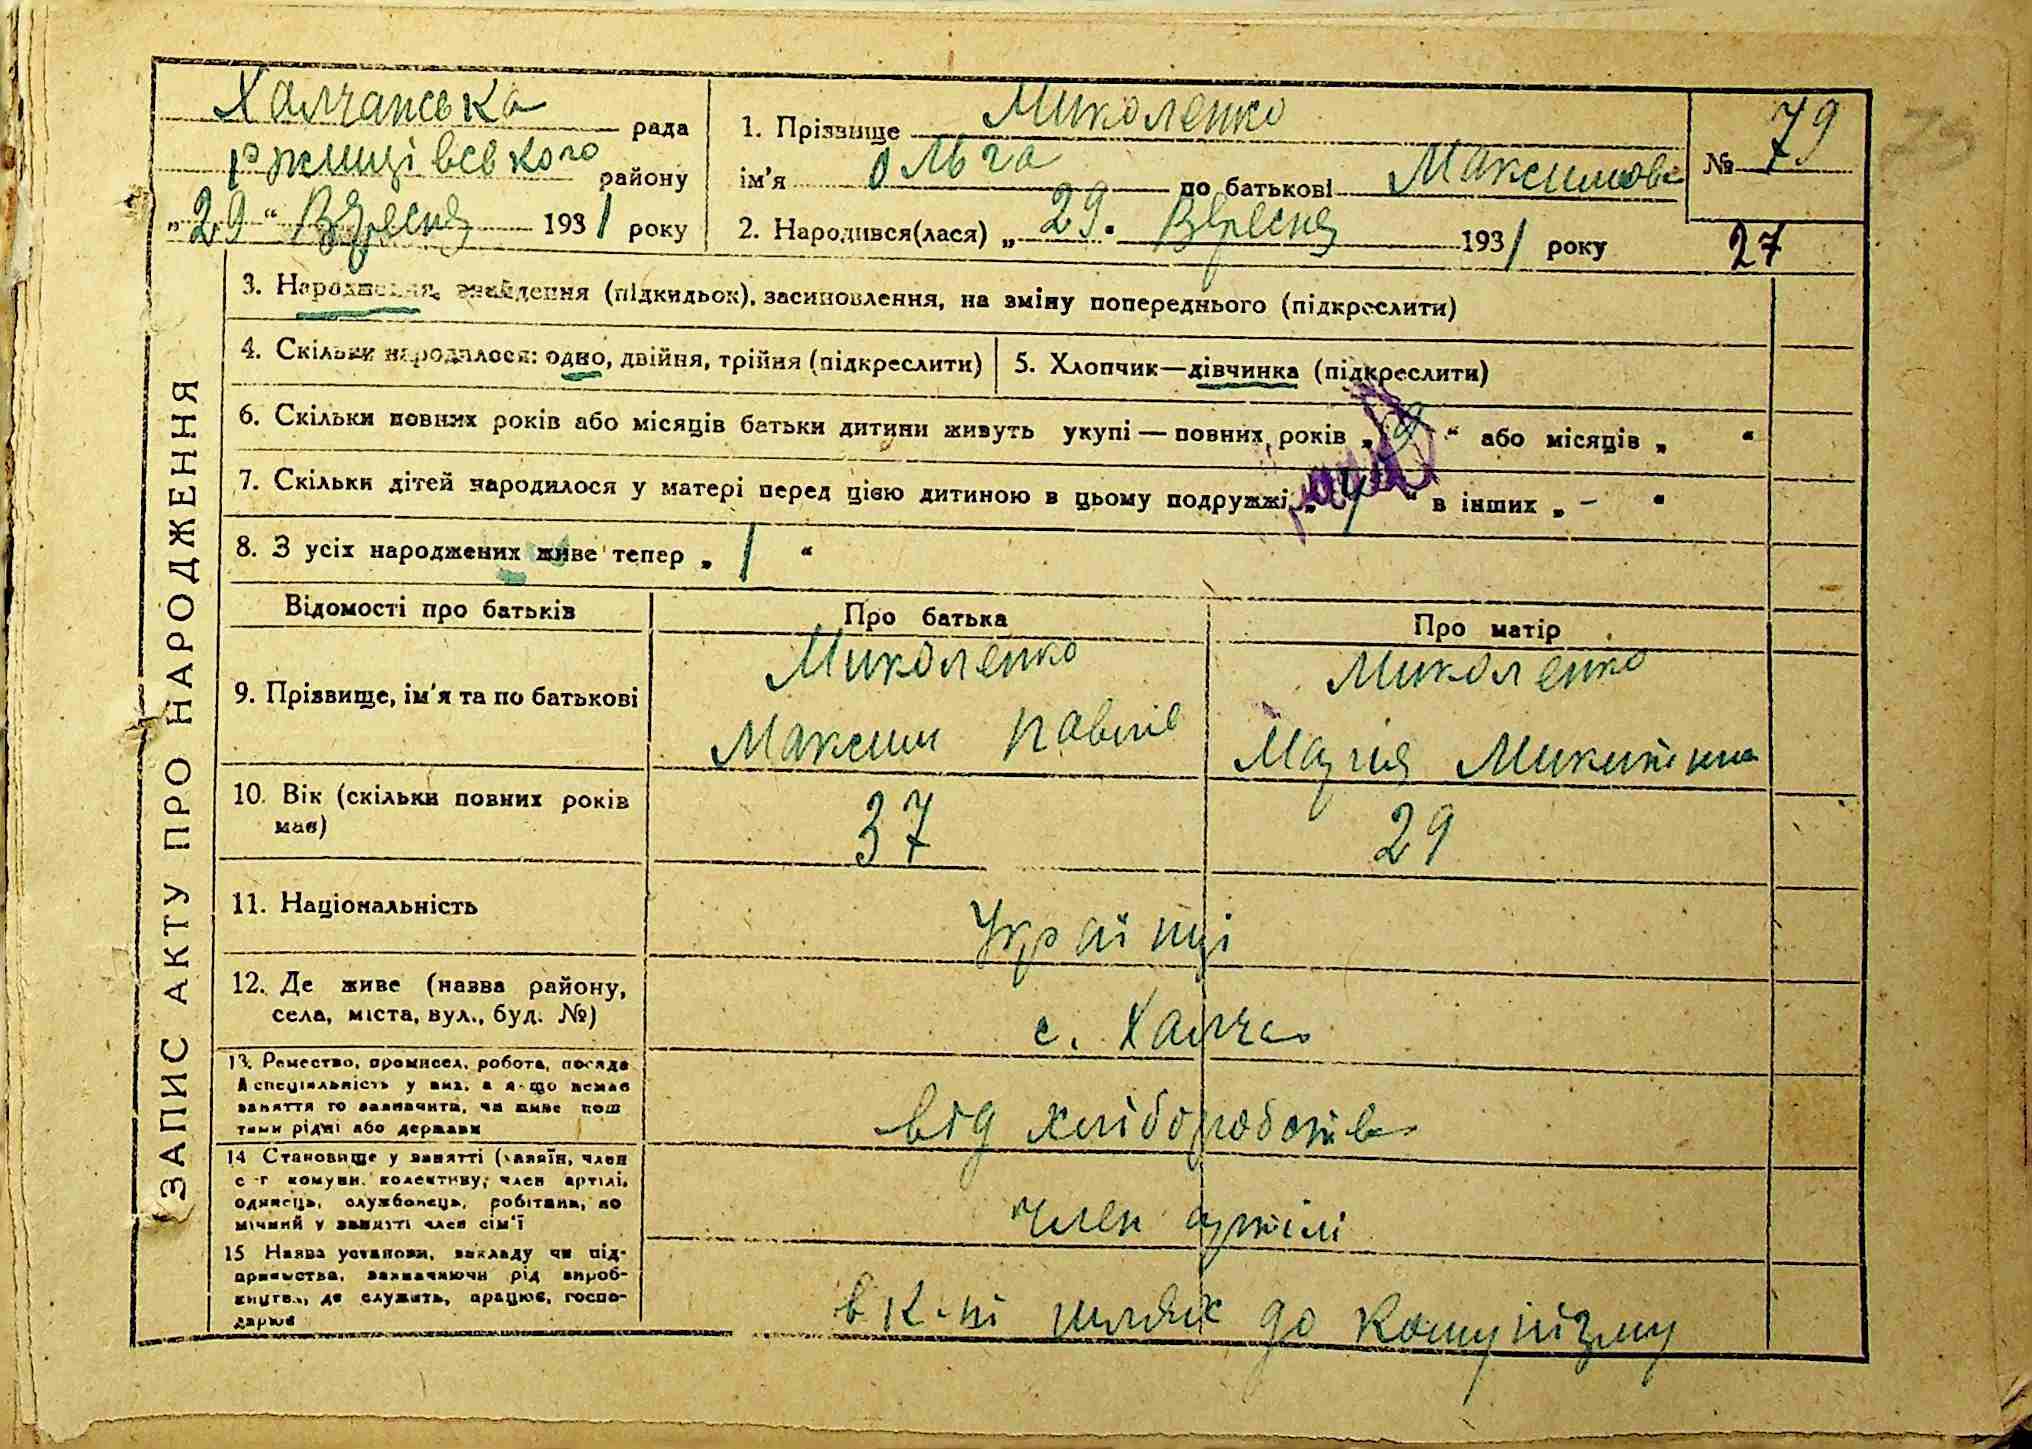 ЗАПИС АКТУ ПРО НАРОДЖЕННЯ
Халчанська рада
Ржищівського району
„29“ Вересня 1931 року
1. Прізвище Миколенко
ім'я Ольга по батькові Максимов
2. Народився(лася) „29. Вересня 1931 року
№ 79
27
3. Народження, знайдення (підкидьок), засиновлення, на зміну попереднього (підкреслити)
4. Скільки народилося: одно, двійня, трійня (підкреслити)
5. Хлопчик—дівчинка (підкреслити)
6. Скільки повних років або місяців батьки дитини живуть укупі — повних років „ “ або місяців „ “
7. Скільки дітей народилося у матері перед цією дитиною в цьому подружжі „ “ в інших „ – “
8. З усіх народжених живе тепер „ 1 “
Відомості про батьків
Про батька
Про матір
9. Прізвище, ім'я та по батькові
Миколенко
Максим Павлів
Миколенко
Марія Микитівна
10. Вік (скільки повних років має)
37
29
11. Національність
Українці
12. Де живе (назва району,
села, міста, вул., буд. №)
с. Халча
13. Ремество, промисел, робота, посада
й спеціяльність у них, а якщо немає
заняття то зазначити, чи живе кош
тами рідні або держави
від хліборобства
14 Становище у занятті (хазяїн, член
с-г комуни, колективу, член артілі,
одинець, службовець, робітник, по
мічний у занятті член сім'ї
член артілі
15 Назва установи, закладу чи під-
приємства, зазначаючи рід вироб-
ництва, де служить, працює, госпо-
дарює
в к-пі шлях до комунізму